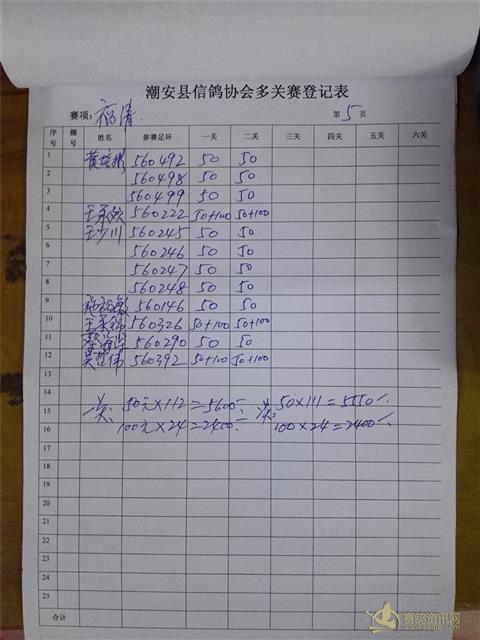 潮安县信鸽协会多关赛登记表
赛项: 福清 第5页
序号 棚号 姓名 参赛足环 一关 二关 三关 四关 五关 六关
1 560492 50 50
2 560498 50 50
3 560499 50 50
4 560222 50+100 50+100
5 王少川 560245 50 50
6 560246 50 50
7 560247 50 50
8 560248 50 50
9 560146 50 50
10 560326 50+100 50+100
11 560290 50 50
12 560392 50+100 50+100
13
14
15 50元×112=5600 50×111=5550
16 100元×24=2400 100×24=2400
17
18
19
20
21
22
23
24
25
合计
赛鸽资讯网